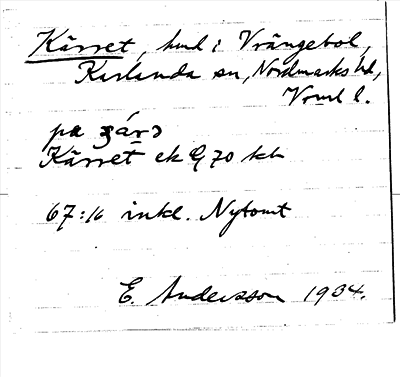 Kärret, hmd i Vrängebol,
Karlanda sn, Nordmarks hd,
Vrml l.
på
Kärret ek G 70 kh
67:16 inkl. Nytomt
E. Andersson 1934.